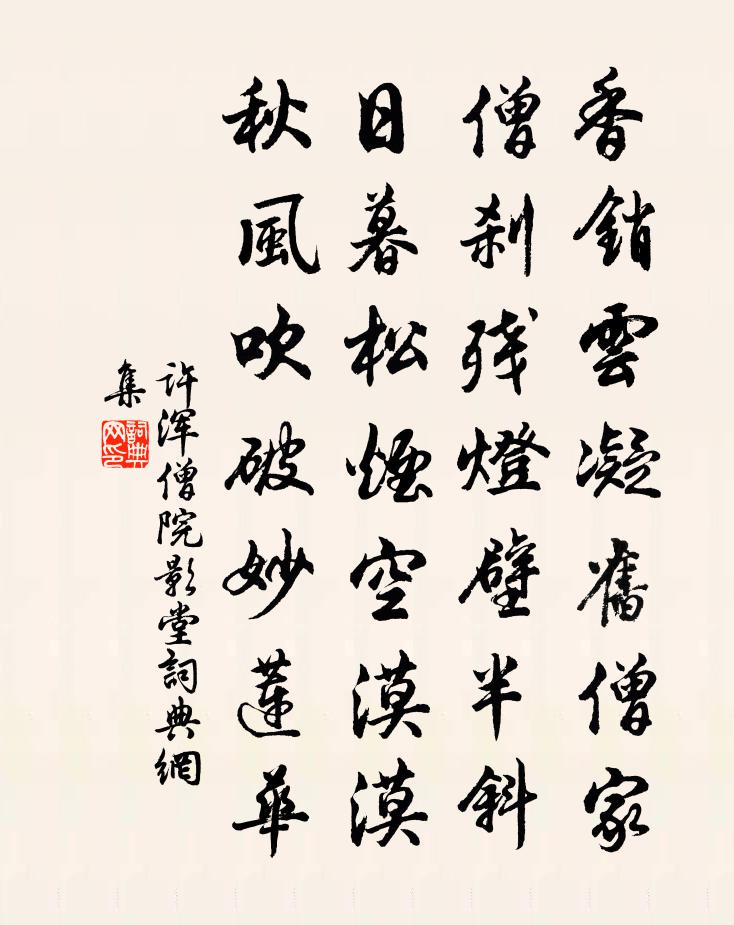 香銷雲凝舊僧家
僧刹残燈壁半斜
日暮松煙空漠漠
秋風吹破妙蓮華
許渾僧院影堂詞典網
集
詞典
网印